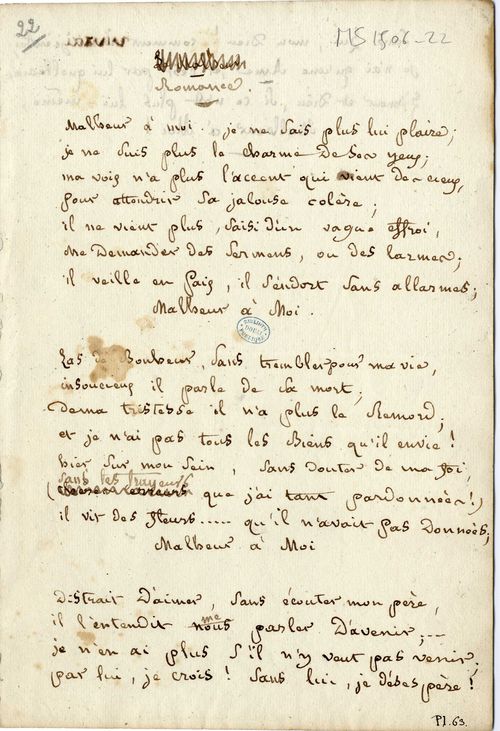 22
MS 1506-22
Romance.
Malheur à moi. je ne sais plus lui plaire;
je ne suis plus le charme de ses yeux;
ma voix n'a plus l'accent qui vient des cieux,
pour attendrir sa jalouse colère;
il ne vient plus, saisi d'un vague effroi,
Me demander des sermens, ou des larmes;
il veille en paix, il s'endort sans allarmes;
Malheur à Moi.
Las de Bonheur, sans trembler pour ma vie,
insoucieux il parle de sa mort;
De ma tristesse il n'a plus le Remord;
et je n'ai pas tous les Biens qu'il envie!
hier sur mon sein, sans douter de ma foi,
sans les frayeurs
( que j'ai tant pardonnées!)
il vit des fleurs..... qu'il n'avait pas Données;
Malheur à Moi
Distrait D'aimer, sans écouter mon père,
me
il l'entendit nous parler D'avenir;...
je n'en ai plus s'il n'y veut pas venir;
par lui, je crois! sans lui, je désespère!
Pl. 63.